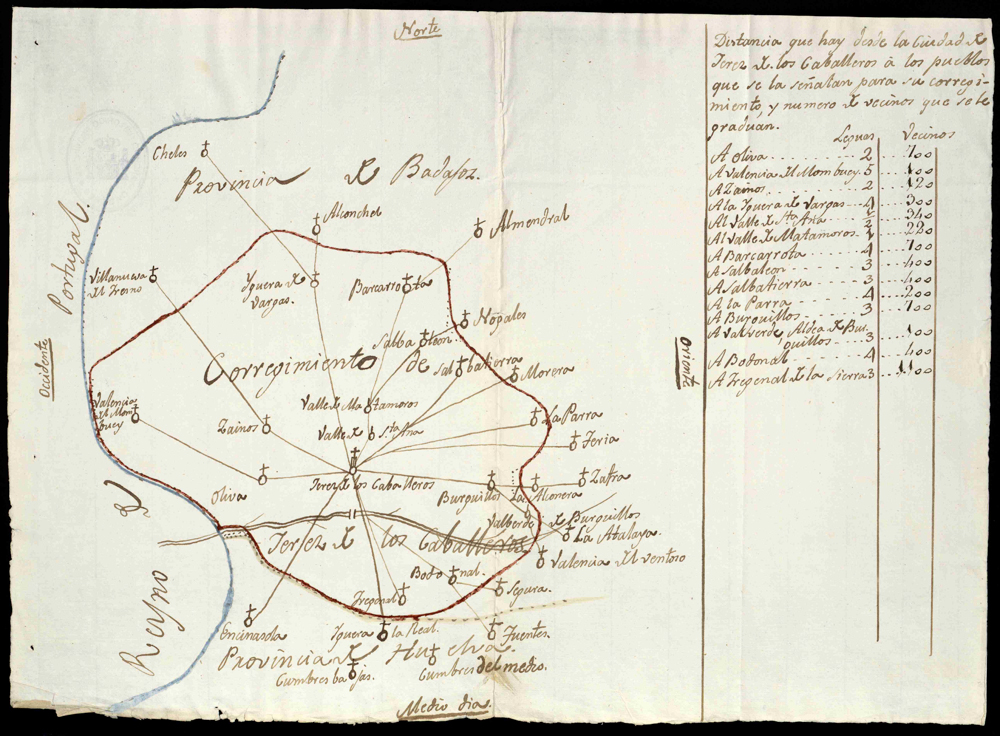 Norte
Cheles
Provincia de Badajoz.
Alconchel
Almendral
Portugal.
Villanueva
del Fresno
Yguera de
Vargas.
Barcarrota
Nogales
Salbaleon
Corregimiento de
Salbatierra
Morera
Occidente
Oriente
Valencia
del Mom
buey
Zainos
Valle de Matamoros
Valle de Sta. Ana
La Parra
Feria
Oliva
Jerez de los Caballeros
Burguillos
La Alconera
Zafra
Valberde de Burguillos
La Atalaya.
Jerez de los Caballeros
Valencia del ventoso
Reyno de
Bodonal.
Segura.
Fregenal
Encinasola
Yguera la Real.
Fuentes
Provincia de Huelva.
Cumbres bajas.
Cumbres del medio.
Medio dia.
Distancia que hay desde la Ciudad de
Jerez de los Caballeros à los pueblos
que se la señalan para su corregi-
miento, y numero de vecinos que se le
graduan.
Leguas Vecinos
A Oliva 2
A Valencia del Mombuey. 5
A Zainos 2
A la Yguera de Vargas 4 300
Al Valle de Sta. Ana 340
Al Valle de Matamoros 220
A Barcarrota 4
A Salbaleon 3
A Salbatierra 3
A la Parra 4 200
A Burguillos 3
A Valverde, Aldea de Bur-
guillos 3
A Bodonal 4
A Fregenal de la Sierra 3